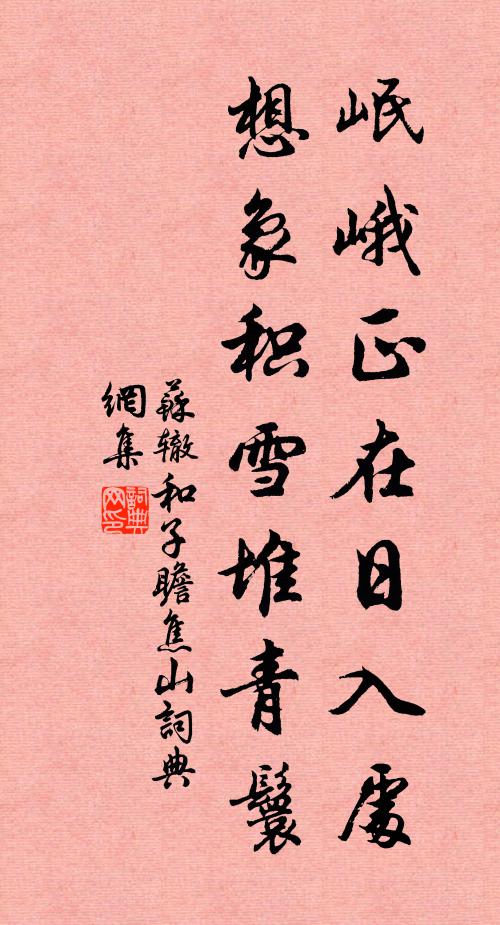 岷峨正在日入處
想象积雪堆青鬟
蘇辙和子瞻焦山詞典
網集
詞典
网印